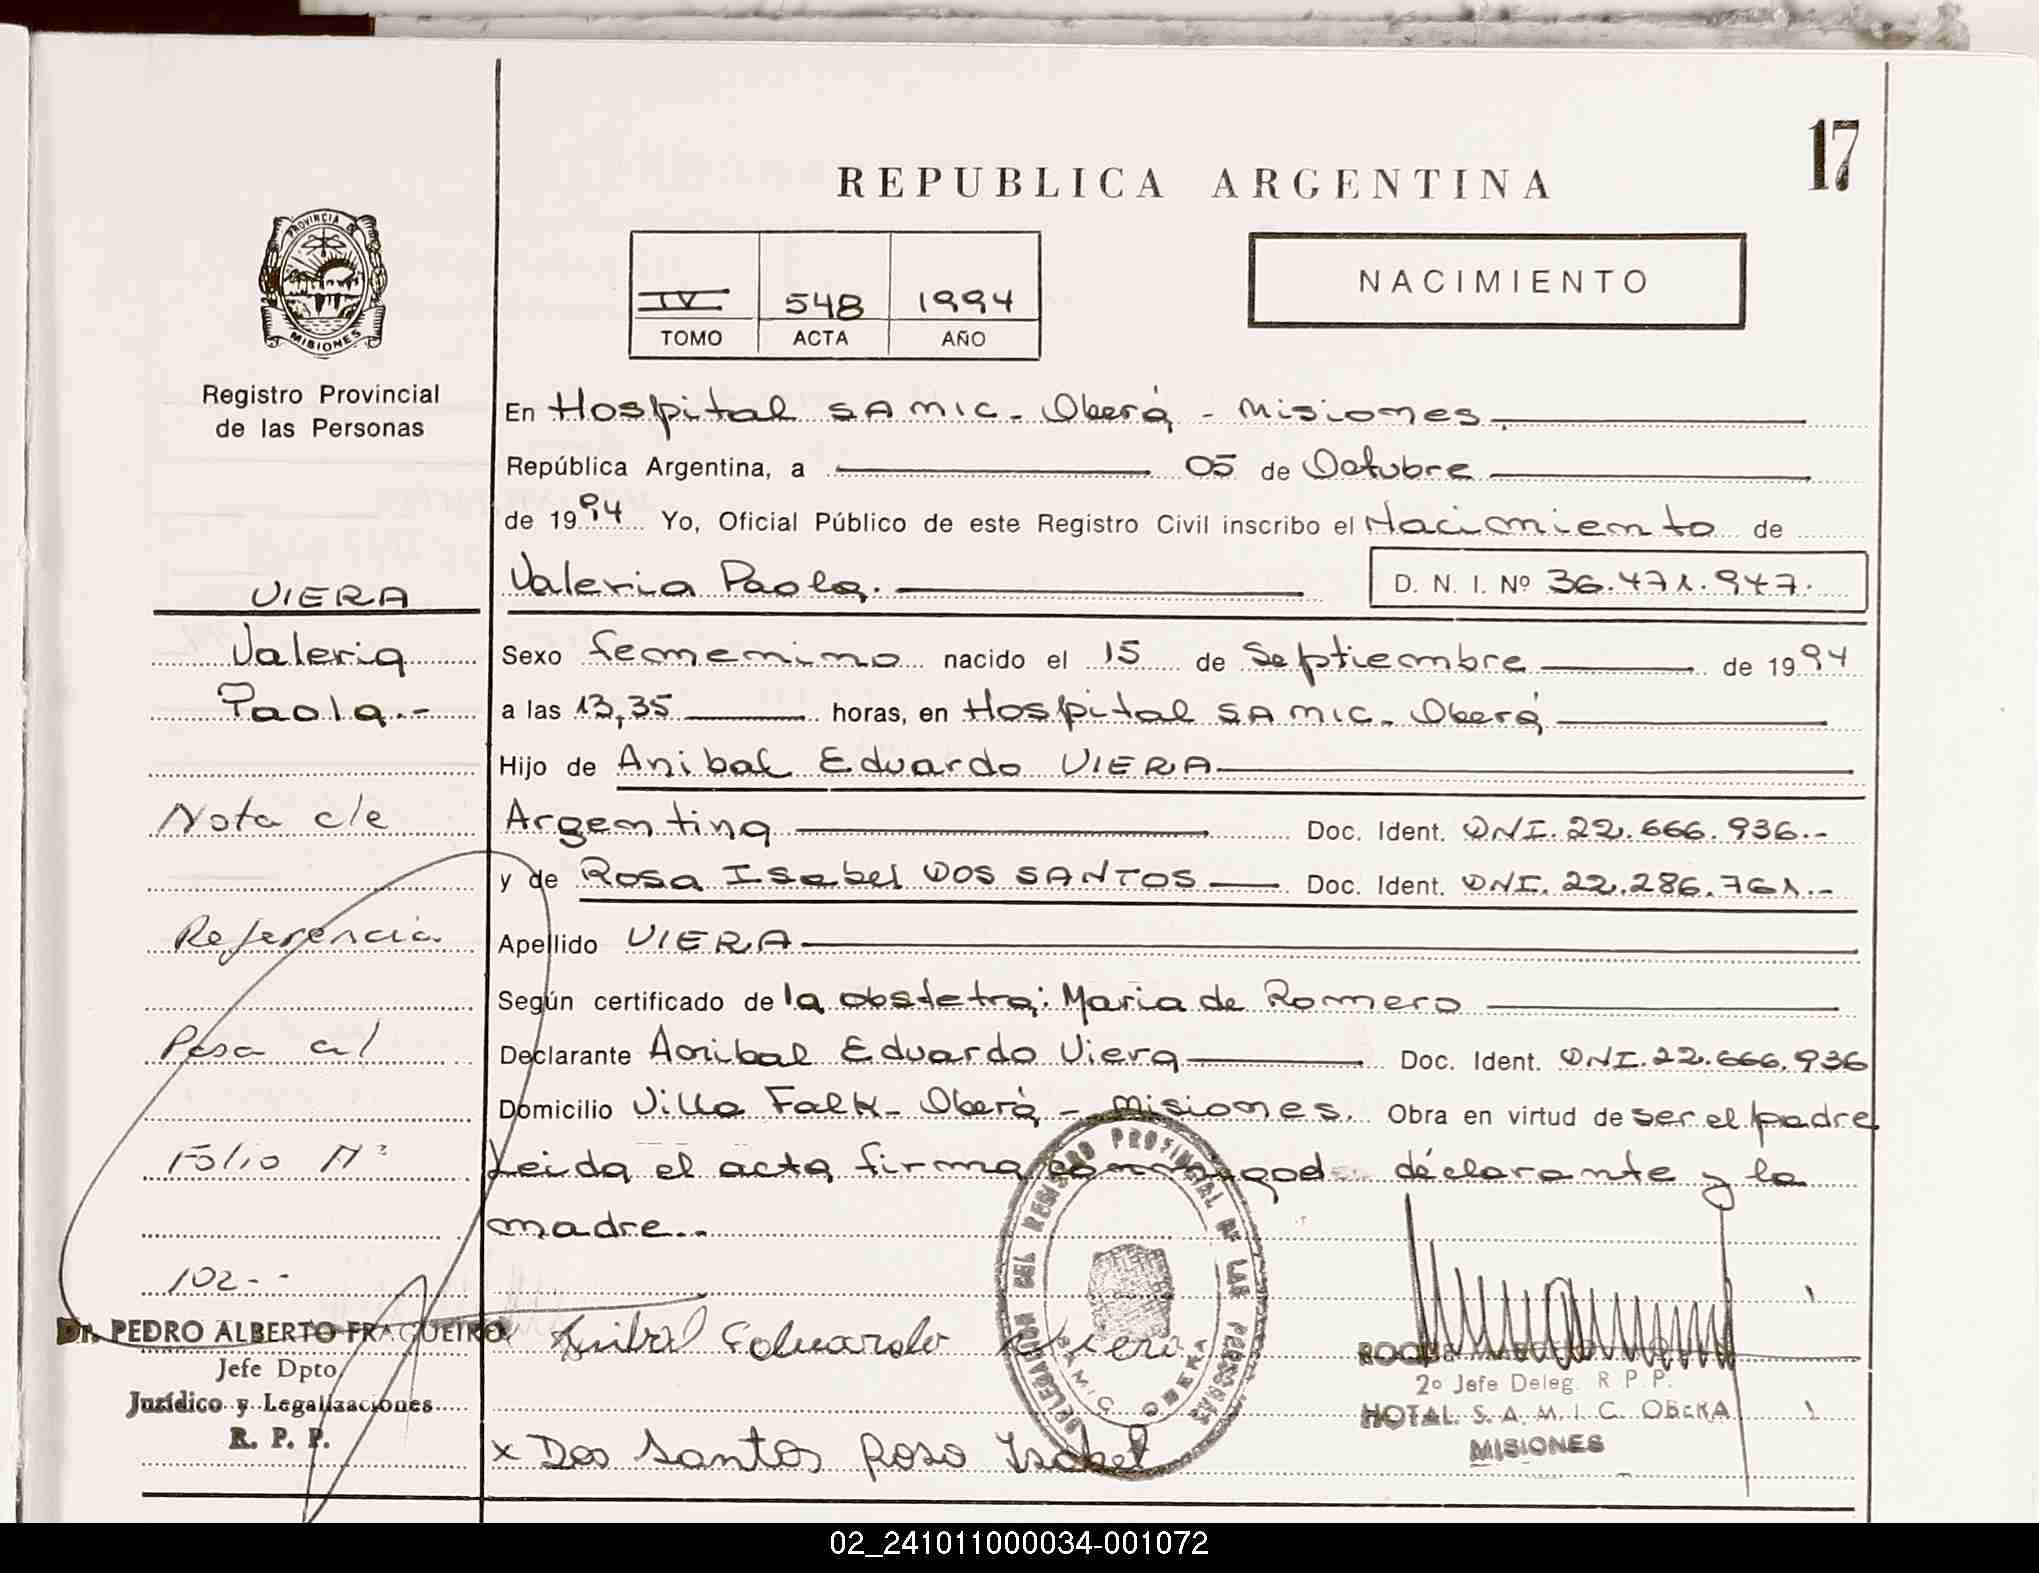 17
REPUBLICA ARGENTINA
PROVINCIA DE
MISIONES
IV 548 1994
TOMO ACTA AÑO
NACIMIENTO
Registro Provincial
de las Personas
En Hospital SAMIC - Oberá - Misiones
República Argentina, a 05 de Octubre
de 1994 Yo, Oficial Público de este Registro Civil inscribo el Nacimiento de
Valeria Paola. D. N. I. Nº 36.471.947.
VIERA
Valeria
Paola.-
Sexo femenino nacido el 15 de Septiembre de 1994
a las 13,35 horas, en Hospital SAMIC - Oberá
Hijo de Anibal Eduardo VIERA
Argentina Doc. Ident. DNI. 22.666.936.-
y de Rosa Isabel DOS SANTOS Doc. Ident. DNI. 22.286.761.-
Apellido VIERA
Según certificado de la obstetra: Maria de Romero
Declarante Anibal Eduardo Viera Doc. Ident. DNI. 22.666.936
Domicilio Villa Falk - Oberá - Misiones. Obra en virtud de ser el padre
Leida el acta firma conmigo el declarante y la
madre..
Nota de
Referencia
Pasa al
Folio Nº
102--
Dr. PEDRO ALBERTO FRAGUEIRO
Jefe Dpto.
Jurídico y Legalizaciones
R. P. P.
Anibal Eduardo Viera
x Dos Santos Rosa Isabel
DELEGACION DEL REGISTRO PROVINCIAL DE LAS PERSONAS
SAMIC OBERA
ROQUE
2º Jefe Deleg. R P P.
HOTAL. S. A. M. I. C. OBERA
MISIONES
02_241011000034-001072